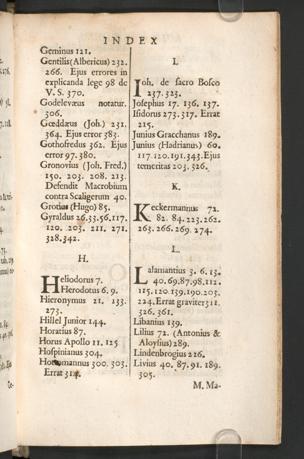 INDEX
Geminus 121.
Gentilis (Albericus) 232.
266. Ejus errores in
explicanda lege 98 de
V. S. 370.
Godelevæus notatur.
306.
Gœddæus (Joh.) 231.
364. Ejus error 383.
Gothofredus 362. Ejus
error 97. 380.
Gronovius (Joh. Fred.)
150. 203. 208. 213.
Defendit Macrobium
contra Scaligerum 40.
Grotius (Hugo) 85.
Gyraldus 26.33.56.117.
120. 203. 211. 271.
328.342.
H.
Heliodorus 7.
Herodotus 6. 9.
Hieronymus 21. 133.
273.
Hillel Junior 144.
Horatius 87.
Horus Apollo 11. 125
Hospinianus 304.
Hottomannus 300. 303.
Errat 314.
I.
Ioh. de sacro Bosco
237. 323.
Josephus 17. 136. 137.
Isidorus 273. 317. Errat
215.
Junius Gracchanus 189.
Junius (Hadrianus) 60.
117.120.191.343. Ejus
temeritas 203. 326.
K.
Keckermannus 72.
82. 84. 223. 262.
263. 266. 269. 274.
L.
Lalamantius 3. 6. 13.
40.69.87.98.112.
115.120.139.190.203.
224. Errat graviter 311.
326. 361.
Libanius 139.
Lilius 72. (Antonius &
Aloysius) 289.
Lindenbrogius 226.
Livius 40. 87. 91. 189.
305.
M. Ma-